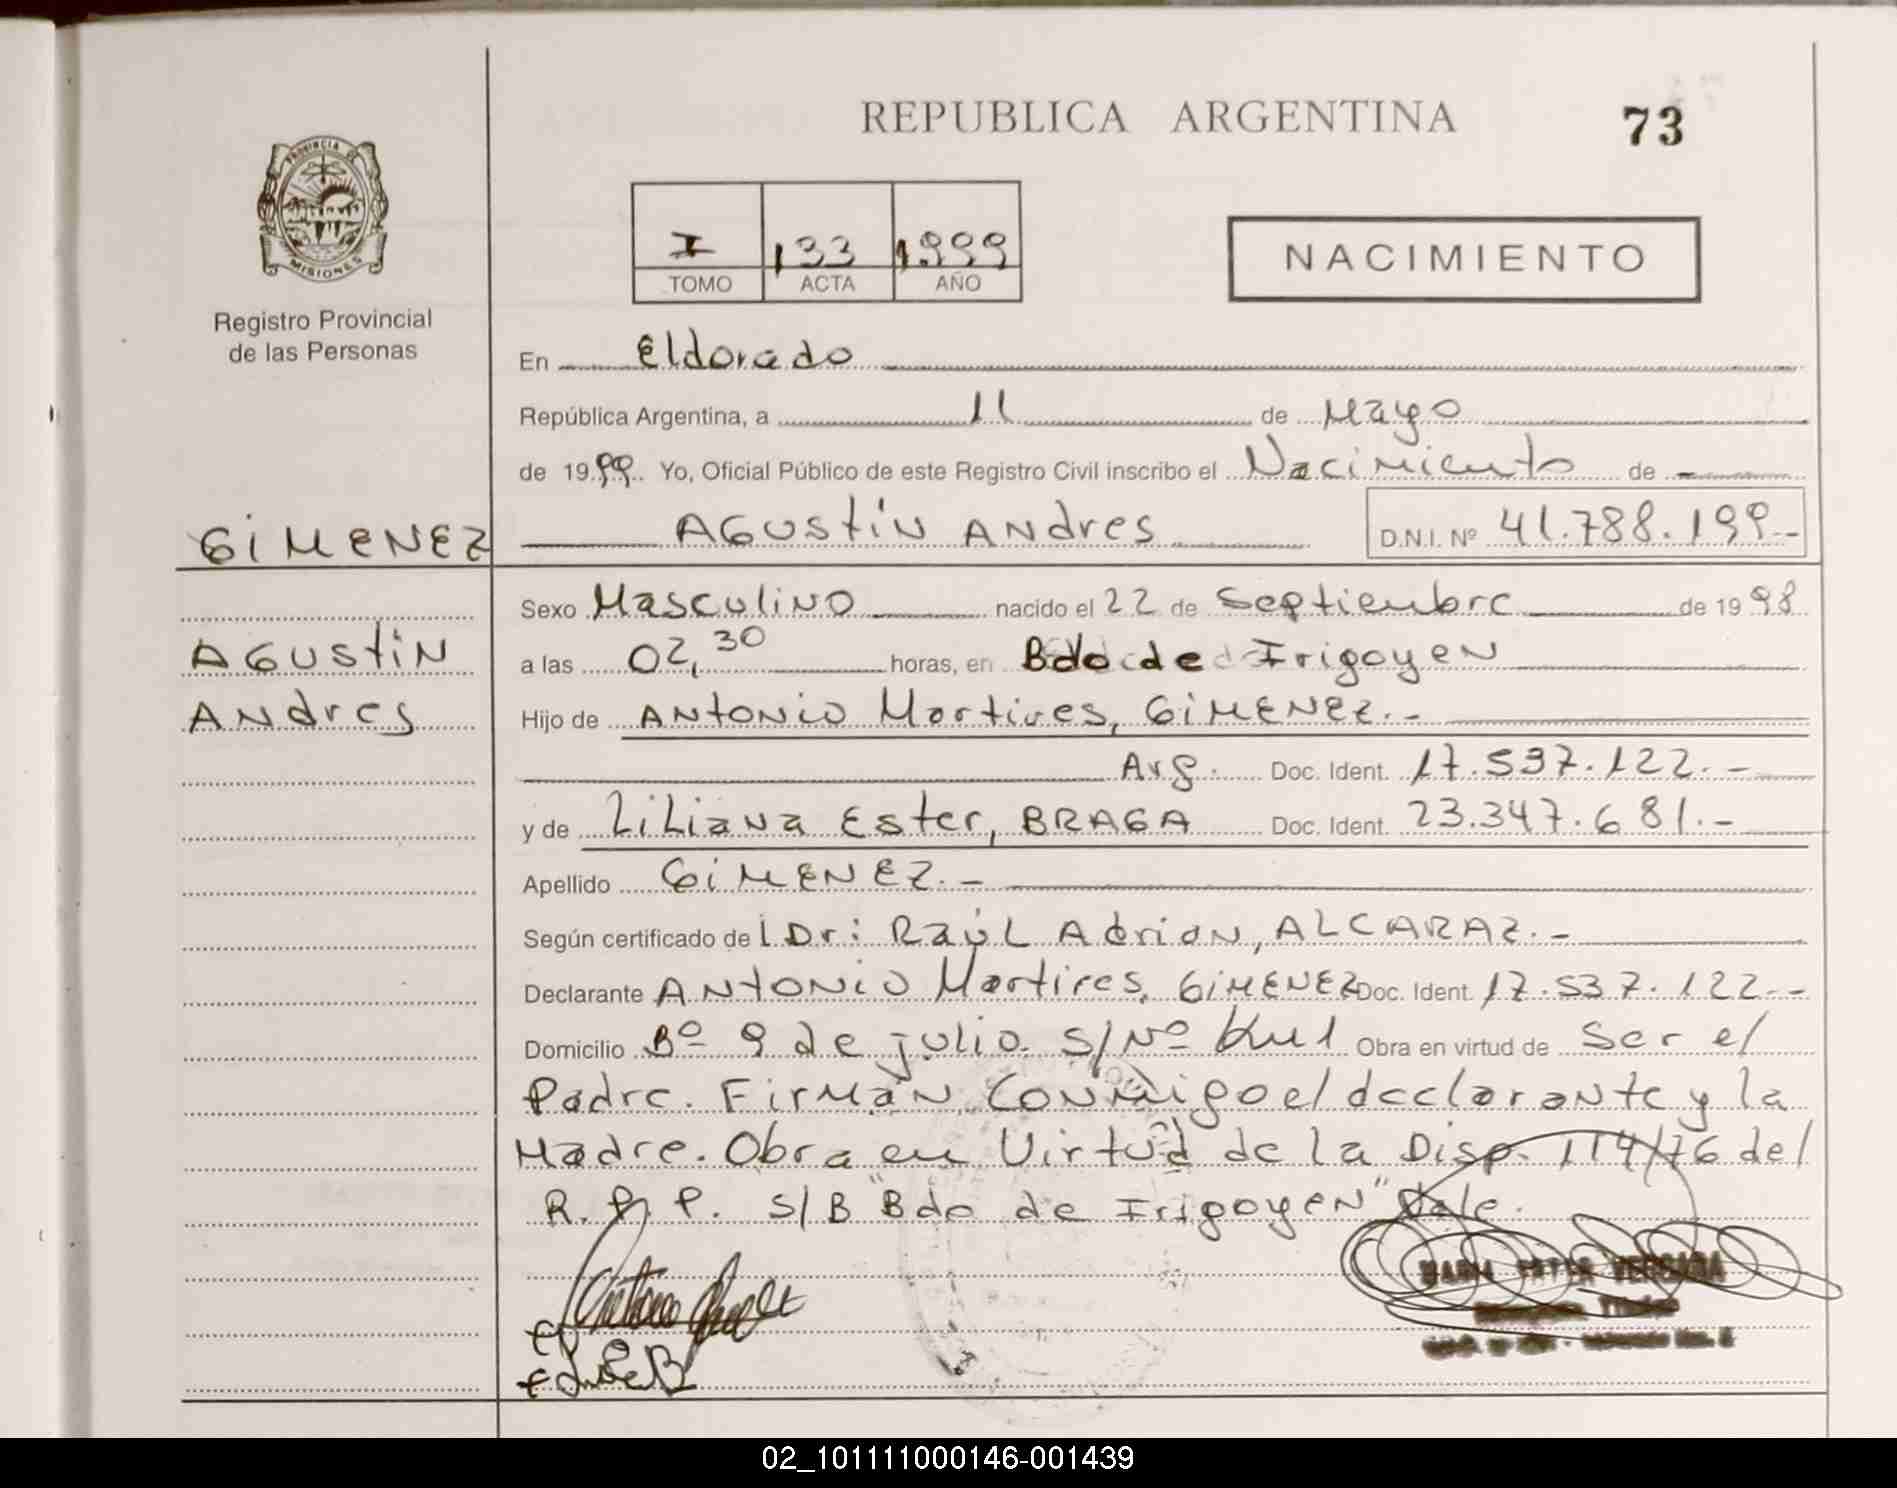 REPUBLICA ARGENTINA
73
PROVINCIA DE
MISIONES
Registro Provincial
de las Personas
I 133 1999
TOMO ACTA AÑO
NACIMIENTO
En Eldorado
República Argentina, a 11 de Mayo
de 1999. Yo, Oficial Público de este Registro Civil inscribo el Nacimiento de
GIMENEZ
AGUStiN ANdres D.N.I. Nº 41.788.199-
Sexo Masculino nacido el 22 de Septiembre de 1998
AGUStiN
a las 02,30 horas, en Bdo de Irigoyen
ANdres
Hijo de ANtONiO Martires, GIMENEZ.-
Arg. Doc. Ident. 17.537.122.-
y de LiLiana Ester, BRAGA Doc. Ident. 23.347.681.-
Apellido GIMENEZ.-
Según certificado del Dr: Raúl Adrian, ALCARAZ.-
Declarante ANtONiO Martires, GIMENEZ Doc. Ident. 17.537.122.-
Domicilio Bº 9 de julio S/Nº Km 1 Obra en virtud de Ser el
Padre. Firman Conmigo el declarante y la
Madre. Obra en Virtud de la Disp. 114/76 del
R.P.P. S/B "Bdo de Irigoyen" Vale.
02_101111000146-001439